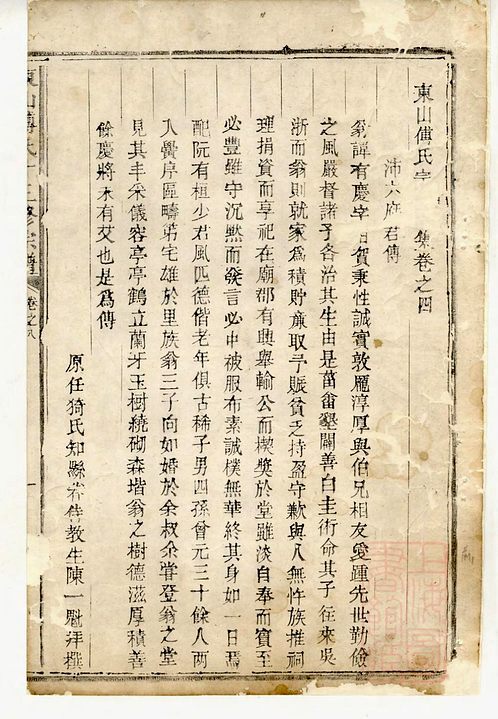 東山傅氏宗 集卷之四
沛六府君傳
翁諱有慶字日賀秉性誠實敦龐淳厚與伯兄相友愛踵先世勤儉
之風嚴督諸子各治其生由是菑畬墾闢善白圭術命其子往來吳
浙而翁則就家為積貯廉取予賑貧乏持盈守歉與人無忤族推祠
理捐資而享祀在廟郡有興舉輸公而楔獎於堂雖淡自奉而賓至
必豐雖守沉默而發言必中被服布素誠樸無華終其身如一日焉
配阮有桓少君風匹德偕老年俱古稀子男四孫曾元三十餘人兩
入黌序區疇第宅雄於里族翁三子向如婚於余叔余嘗登翁之堂
見其丰采儀容亭亭鶴立蘭牙玉樹繞砌森堦翁之樹德滋厚積善
餘慶將未有艾也是為傳
原任猗氏知縣 教生陳一魁拜撰
東山傅氏 修宗譜 卷之八